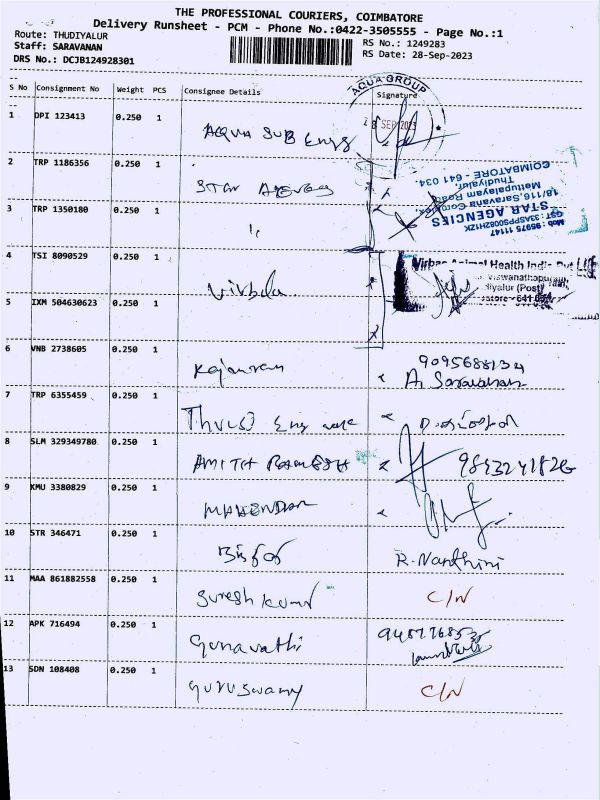 THE PROFESSIONAL COURIERS, COIMBATORE
Delivery Runsheet - PCM - Phone No.:0422-3505555 - Page No.:1
Route: THUDIYALUR RS No.: 1249283
Staff: SARAVANAN RS Date: 28-Sep-2023
DRS No.: DCJB124928301
S No Consignment No Weight PCS Consignee Details Signature
AQUA GROUP
SEP 2023
1 DPI 123413 0.250 1 AQUA SUB Engg
2 TRP 1186356 0.250 1 STAR Agencies
Mob : 95975 11147
GST : 33ASPPS0082H1ZK
STAR AGENCIES
18/116, Saravana Complex,
Mettupalayam Road,
Thudiyalur,
COIMBATORE - 641 034.
3 TRP 1350180 0.250 1 "
4 TSI 8090529 0.250 1 Virbac
Virbac Animal Health India Pvt Ltd
Viswanathapuram,
diyalur (Post)
5 IXM 504630623 0.250 1
6 VNB 2738605 0.250 1 9095688134
A. Saravanan
7 TRP 6355459 0.250 1
8 SLM 329349780 0.250 1 AMITH RAMESH 9843241826
9 KMU 3380829 0.250 1 MAHENDAR
10 STR 346471 0.250 1 R. Nanthini
11 MAA 861882558 0.250 1 Suresh kumar C/N
12 APK 716494 0.250 1 Gunavathi
13 SDN 108408 0.250 1 guruswamy C/N